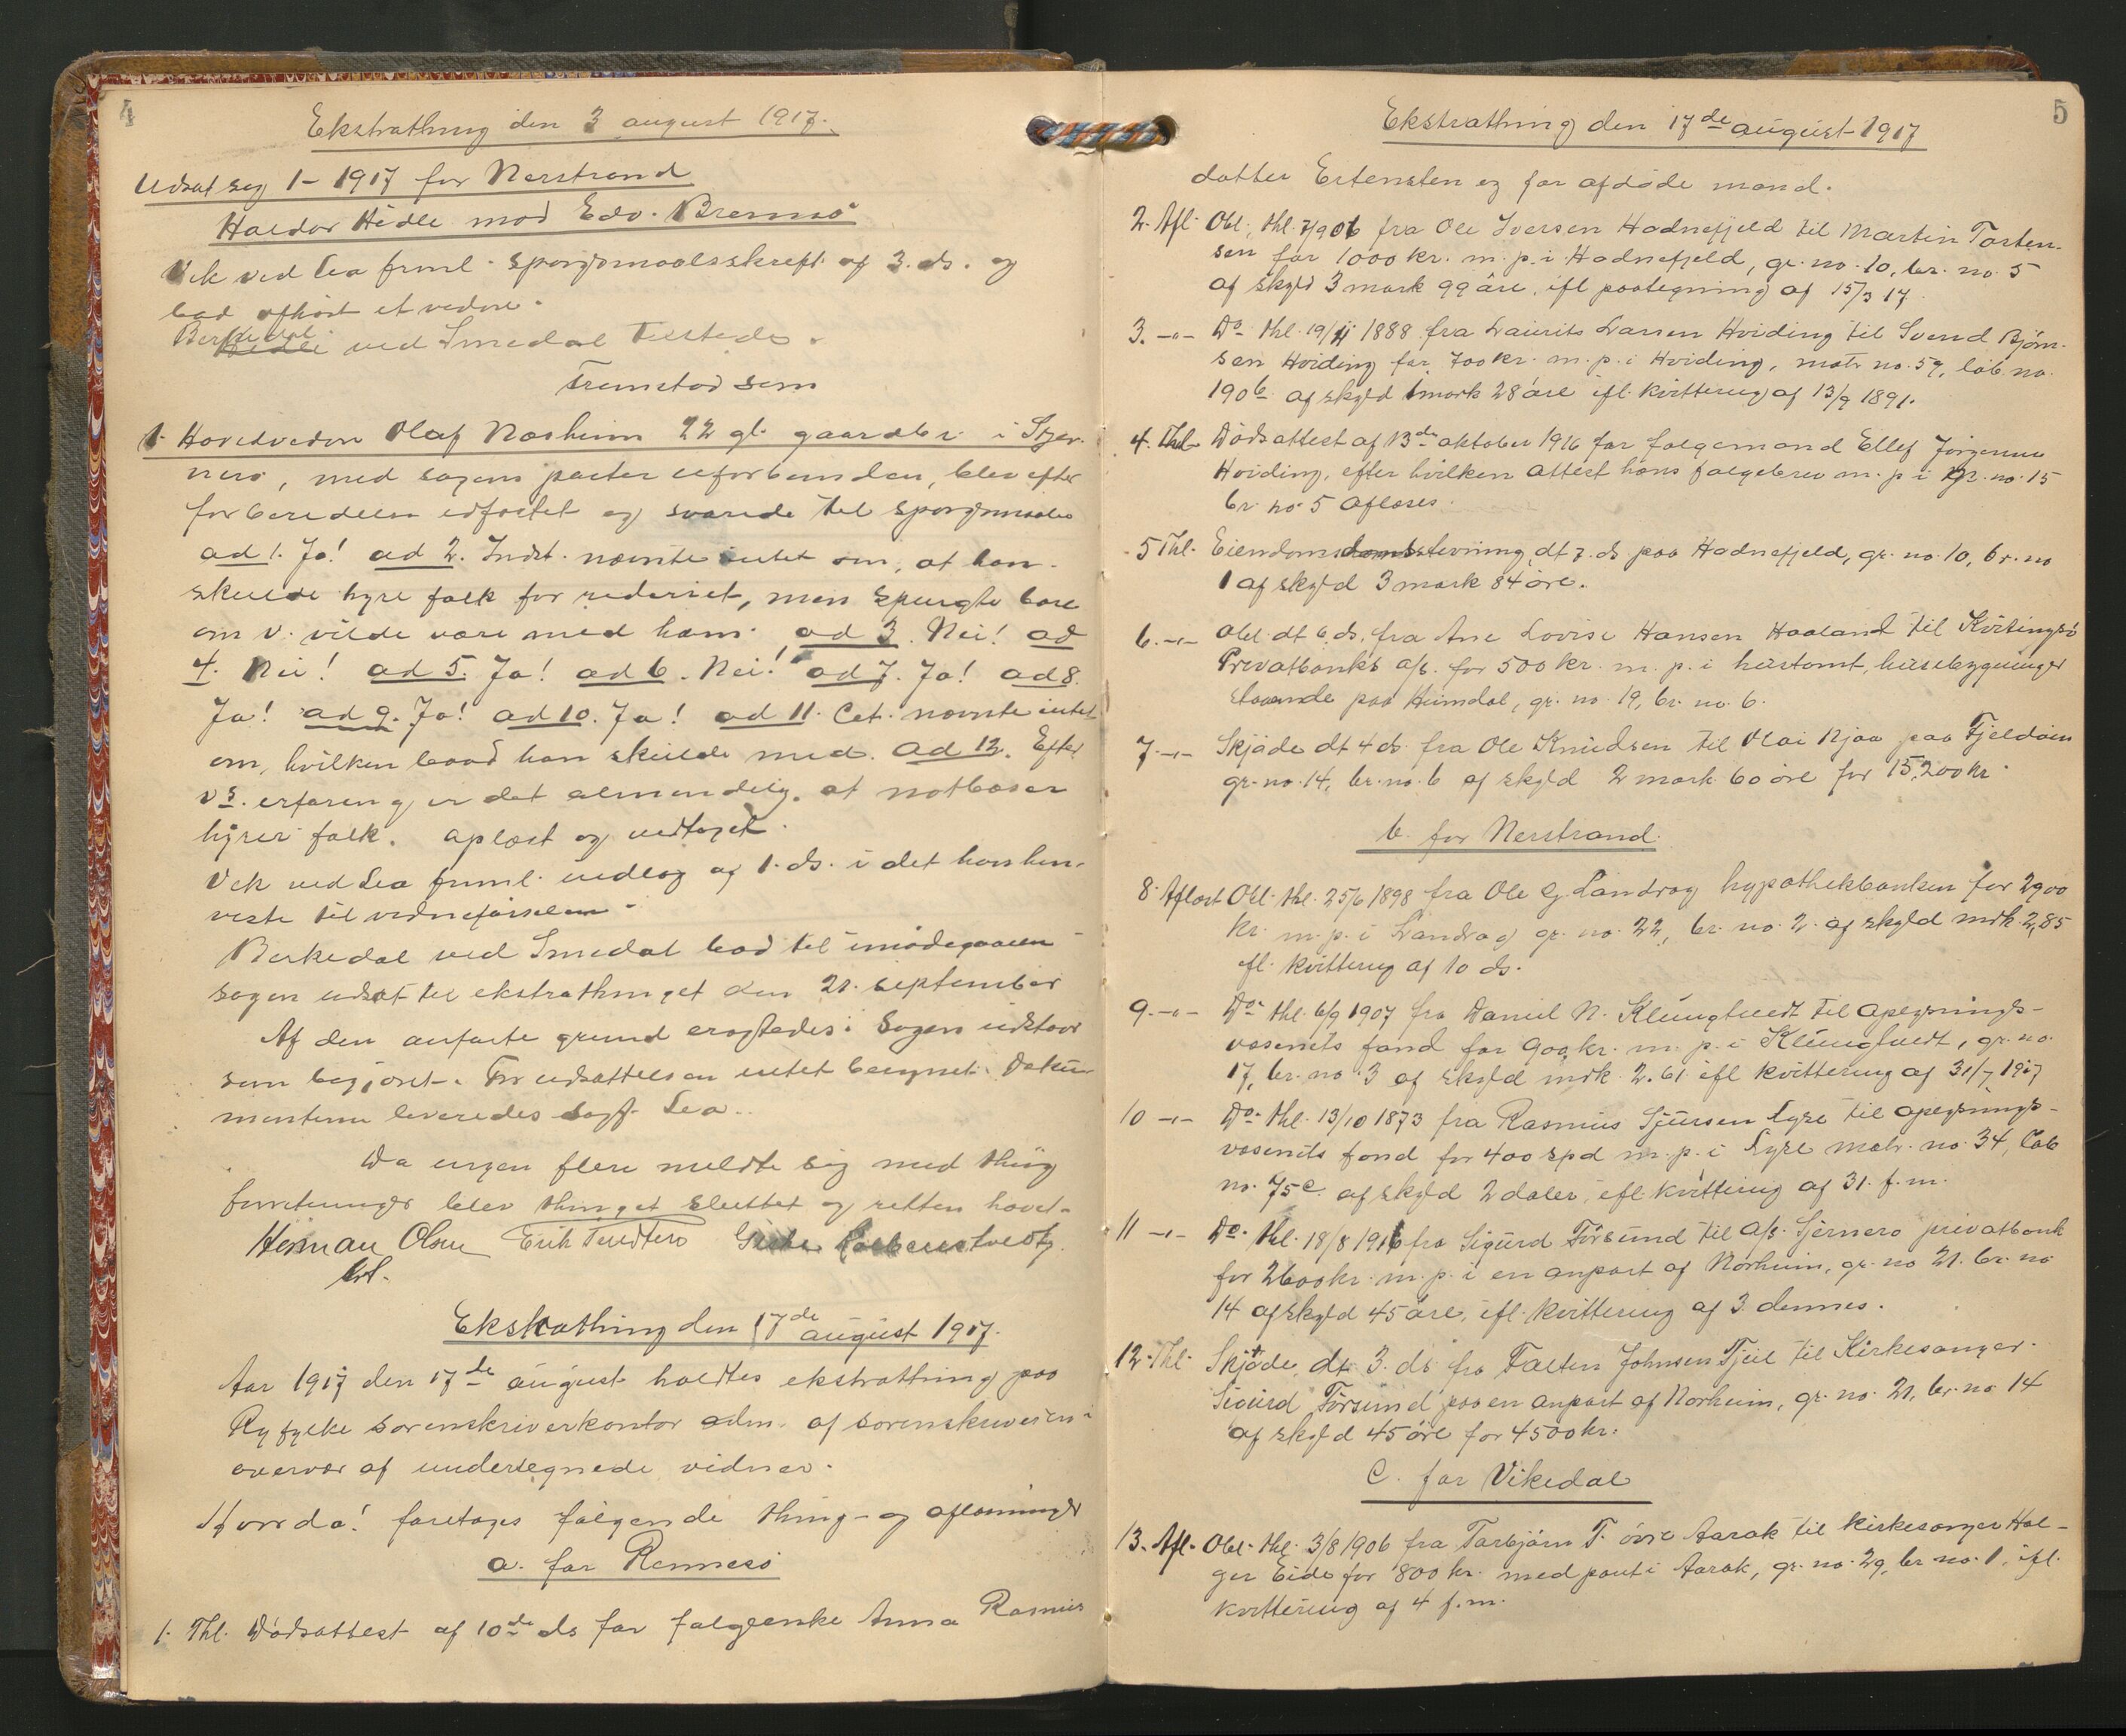 4
Ekstrathing den 3 august 1917.
Udsat sag 1-1917 for Nerstrand
Haldor Hidle mod Edv. Bremnes
Vek ved Lea freml. spørgsmaalsskrift af 3. ds. og
bad afhørt et vidne.
Berkedal ved Smedal tilstede.
Fremstod som
1. Hovedvidne Olaf Nesheim 22 gl. gaardbr. i Sjer-
nerø, med sagens parter uforbunden, blev efter
foreredelse edfæstet og svarede til spørgsmaalet
ad 1. Ja! ad 2. Indst. nævnte intet om, at han
skulde hyre folk for rederiet, men spurgte bare
om v. vilde være med ham. ad 3. Nei! ad
4. Nei! ad 5. Ja! ad 6. Nei! ad 7. Ja! ad 8.
Ja! ad 9. Ja! ad 10. Ja! ad 11. Cit. nævnte intet
om, hvilken baad han skulde med. ad 12. Efter
vs. erfaring er det almindelig, at notbaser
hyrer folk. Oplæst og vedtaget.
Vek ved Lea freml. indlæg af 1. ds. i det han hen-
viste til vidneførselen.
Berkedal ved Smedal bad til imødegaaen
sagen udsat til ekstrathinget den 21. september
Af den anførte grund eragtedes: Sagen udstaar
som begjæret. For udsættelsen intet beregnet. Doku-
menterne leveredes sagf. Lea.
Da ingen flere meldte sig med thing
forretninger blev thinget sluttet og retten hævet.
Herman Olsen Erik Tendten
cst.
Ekstrathing den 17de august 1917.
Aar 1917 den 17de august holdtes ekstrathing paa
Ryfylke sorenskriverkontor adm. af sorenskriveren i
overvær af undertegnede vidner.
Hvorda! foretoges følgende thing- og aflæsninger
a. for Rennesø
1. Thl. Dødsattest af 10de ds for folgeenke Anna Rasmus
5
Ekstrathing den 17de august 1917
datter Ertensten og for afdøde mand.
2. Afl. Obl. thl. 7/9 06 fra Ole Iversen Hodnefjeld til Martin Torsten-
sen for 1000 kr. m. p. i Hodnefjeld, gr. no. 10, br. no. 5
af skyld 3 mark 99 øre, ifl paategning af 15/3 17.
3. -"- Do. thl. 19/4 1888 fra Laurits Larsen Hviding til Svend Bjørn-
sen Hviding for 700 kr. m. p. i Hviding, matr. no. 59, løb. no.
190b af skyld 1 mark 28 øre ifl. kvittering af 13/9 1891.
4. Thl. Dødsattest af 13de oktober 1916 for folgemand Ellef Jørgensen
Hviding, efter hvilken attest hans folgebrev m. p. i gr. no. 15
br. no 5 aflæses.
5 Thl. Eiendomsdomsstevning dt 7. ds paa Hodnefjeld, gr. no. 10, br. no
1 af skyld 3 mark 84 øre.
6. -"- Obl. dt 6. ds. fra Ane Lovise Hansen Haaland til Kvitingsø
Privatbanks a/s. for 500 kr. m. p. i hustomt, husebygninger
staaende paa Heimdal, gr. no. 19, br. no. 6.
7 -"- Skjøde dt 4 ds. fra Ole Knudsen til Olai Njaa paa Fjeldøen
gr. no. 14, br. no. 6 af skyld 2 mark 60 øre for 15,200 kr.
b. for Nerstrand.
8. Aflæst Obl. thl. 25/6 1898 fra Ole G Landrag hypothekbanken for 2900
kr. m. p. i Landrag gr. no. 22, br. no. 2. af skyld mrk 2,85
ifl. kvittering af 10 ds.
9. -"- Do. thl. 6/9 1907 fra Daniel N. Klungtvedt til oplysnings-
væsenets fond for 900 kr. m. p. i Klungtvedt, gr. no.
17, br. no 3 af skyld mrk. 2.61 ifl kvittering af 31/7 1917
10 -"- Do. thl. 13/10 1873 fra Rasmus Sjursen Lyse til oplysnings-
væsenets fond for 400 spd m. p. i Lyse matr. no. 34, løb
no. 75c. af skyld 2 daler, ifl. kvittering af 31. f. m.
11 -"- Do. thl. 18/8 1916 fra Sigurd Førsund til a/s. Sjernerø privatbank
for 2600 kr. m. p. i en anpart af Norheim, gr. no 21. br. no
14 af skyld 45 øre, ifl. kvittering af 3. dennes.
12. Thl. Skjøde, dt 3. ds fra Falten Johnsen Tjeil til Kirkesanger
Sigurd Førsund paa en anpart af Norheim, gr. no. 21, br. no 14
af skyld 45 øre for 4500 kr.
C. for Vikedal
13. Afl. Obl. thl. 3/8 1906 fra Torbjørn T. øvre Aarak til kirkesanger Hol-
ger Eide for 800 kr. med pant i Aarak, gr. no. 29, br no. 1, ifl.
kvittering af 4 f. m.